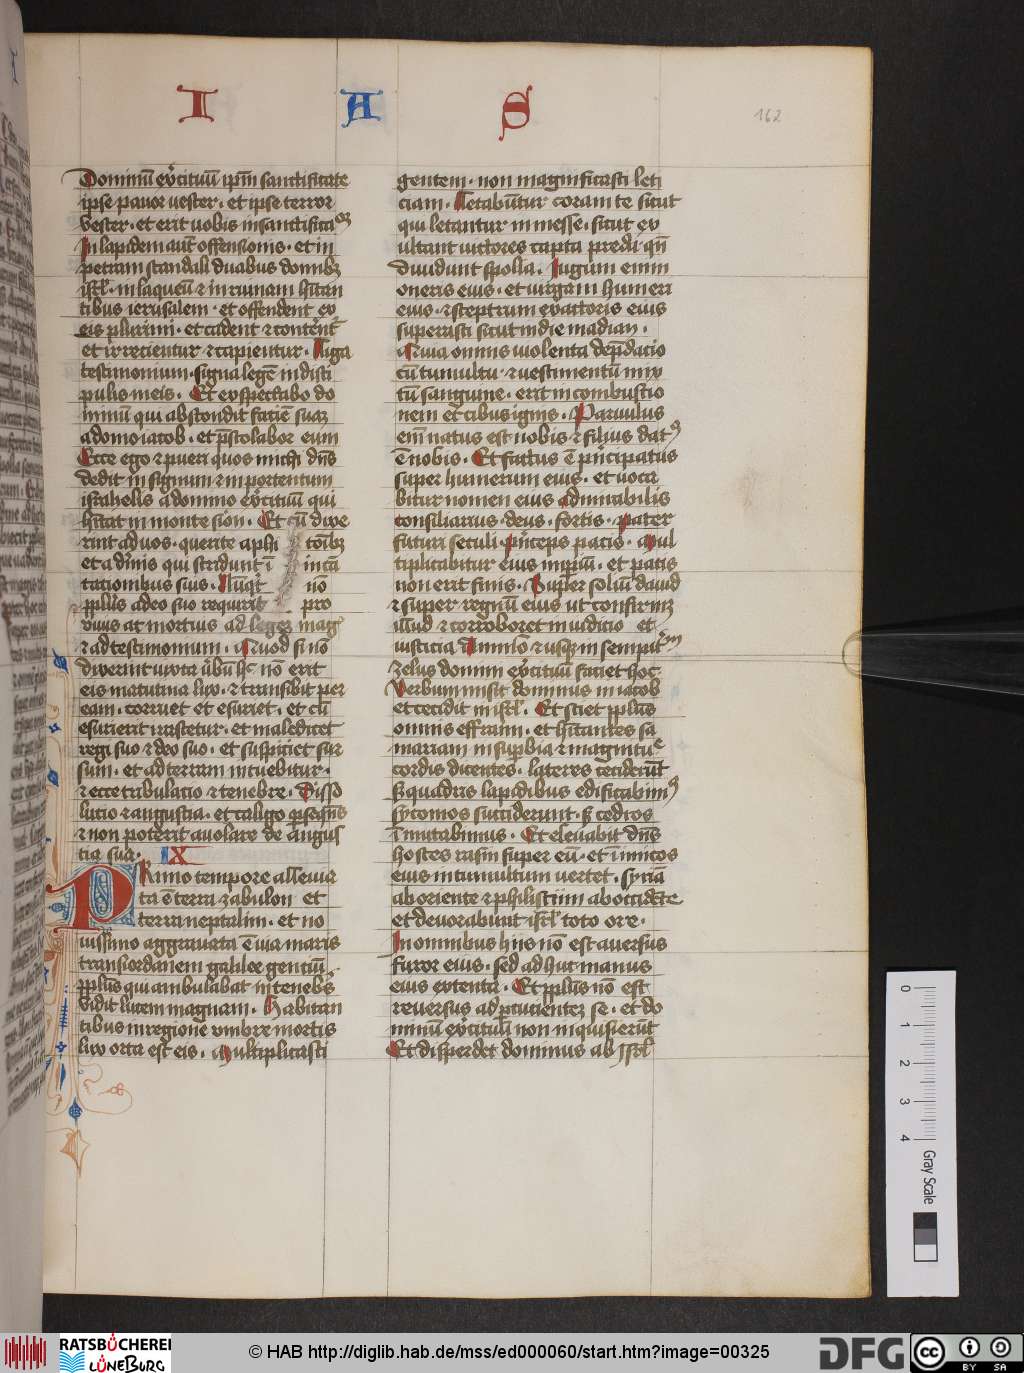 I A S
162
Dominū exˀcituū ip̄m sanctificate
ipse pavor vester · et ipse terror
vester · et erit vobis in sanctifica
In lapidem aut̄ offensionis · et in
petram scandali duabus domibꝫ
isrl̄ · in laqueū ⁊ in ruinam hītan
tibus ierusalem · et offendent ex
eis plurimi · et cadent ⁊ conterent̄
et irrecientur ⁊ capientur · Liga
testimonium · signa legē in disci
pulis meis · Et exspectabo do
minū qui abscondit faciē suaꝫ
a domo iacob · et p̄stolabor eum
Ecce ego ⁊ pueri quos michi dn̄s
dedit in signum ⁊ in portentum
israhelis a domino exˀcituū qui
hītat in monte sion · Et cū dixe
rint ad vos · querite a phi toībꝫ
et a divīis qui stridunt ī incā
tationibus suis · Nūqͥt nō
pplūs a deo suo requirit pro
vivis ac mortuis ad legeꝫ mag
⁊ ad testimonium · Quod si nō
dixerint iuxta v̄bū hͦ nō erit
eis matutina lux · ⁊ transibit per
eam · corruet et esuriet · et cū
esurierit irascetur · et maledicet
regi suo ⁊ deo suo · et suspiciet sur
sum · et ad terram intuebitur ·
⁊ ecce tribulacio ⁊ tenebre · Disso
lucio ⁊ angustia · et caligo p̄seqn̄s
⁊ non poterit avolare de angus
tia sua · IX
PRimo tempore alleviā
ta ē terra zabulon et
terra neptalim · et no
vissimo aggravata ē via maris
transiordanem galilee gentiū
pplūs qui ambulabat in tenebˀs
vidit lucem magnam · Habitan
tibus in regione umbre mortis
lux orta est eis · Multiplicasti
gentem · non magnificasti leti
ciam · Letabūtur coram te sicut
qui letantur in messe · sicut ex
ultant victores capta preda qn̄
dividunt spolia · Iugum enim
oneris eius · et virgam humeri
eius · ⁊ sceptrum exactoris eius
superasti sicut in die madian ·
Quia omnis violenta dep̄dacio
cū tumultu · ⁊ vestimentū mix
tū sanguine · erit in combustio
nem et cibus ignis · Parvulus
em̄ natus est nobis ⁊ filius datꝰ
ē nobis · Et factus ē pͥncipatus
super humerum eius · et voca
bitur nomen eius admirabilis
consiliarius · deus · fortis · pater
futuri seculi · pͥnceps pacis · Mul
tiplicabitur eius imp̄iū · et pacis
non erit finis · Super soliū david
⁊ super regnū eius ut confirmꝫ
illud ⁊ corroboret in iudicio et
iusticia Amō ⁊ usqꝫ in sempitˀm
Zelus domini exˀcituū faciet hoc ·
Verbum misit dominus in iacob
et cecidit in isrl̄ · Et sciet pplūs
omnis effraim · et hītantes sa
mariam in supˀbia ⁊ magnitu
cordis dicentes · lateres ceciderūt
sꝫ quadris lapidibus edificabimꝰ
sycomos succiderunt · sꝫ cedros
īmutabimus · Et elevabit dn̄s
hostes rasin super eū · et inimicos
eius in tumultum vertet · Syriā
ab oriente ⁊ philistiim ab occidēte
et devorabunt isrl̄ toto ore ·
In omnibus hiis nō est aversus
furor eius · sed adhuc manus
eius extenta · Et pplūs nō est
reversus ad p̄cucientez se · et do
minū exˀcituū non inquisierūt
Et disperdet dominus ab isrl̄
0
1
2
3
4
Gray Scale
RATSBÜCHEREI
LÜNEBURG
© HAB http://diglib.hab.de/mss/ed000060/start.htm?image=00325
DFG
cc BY SA